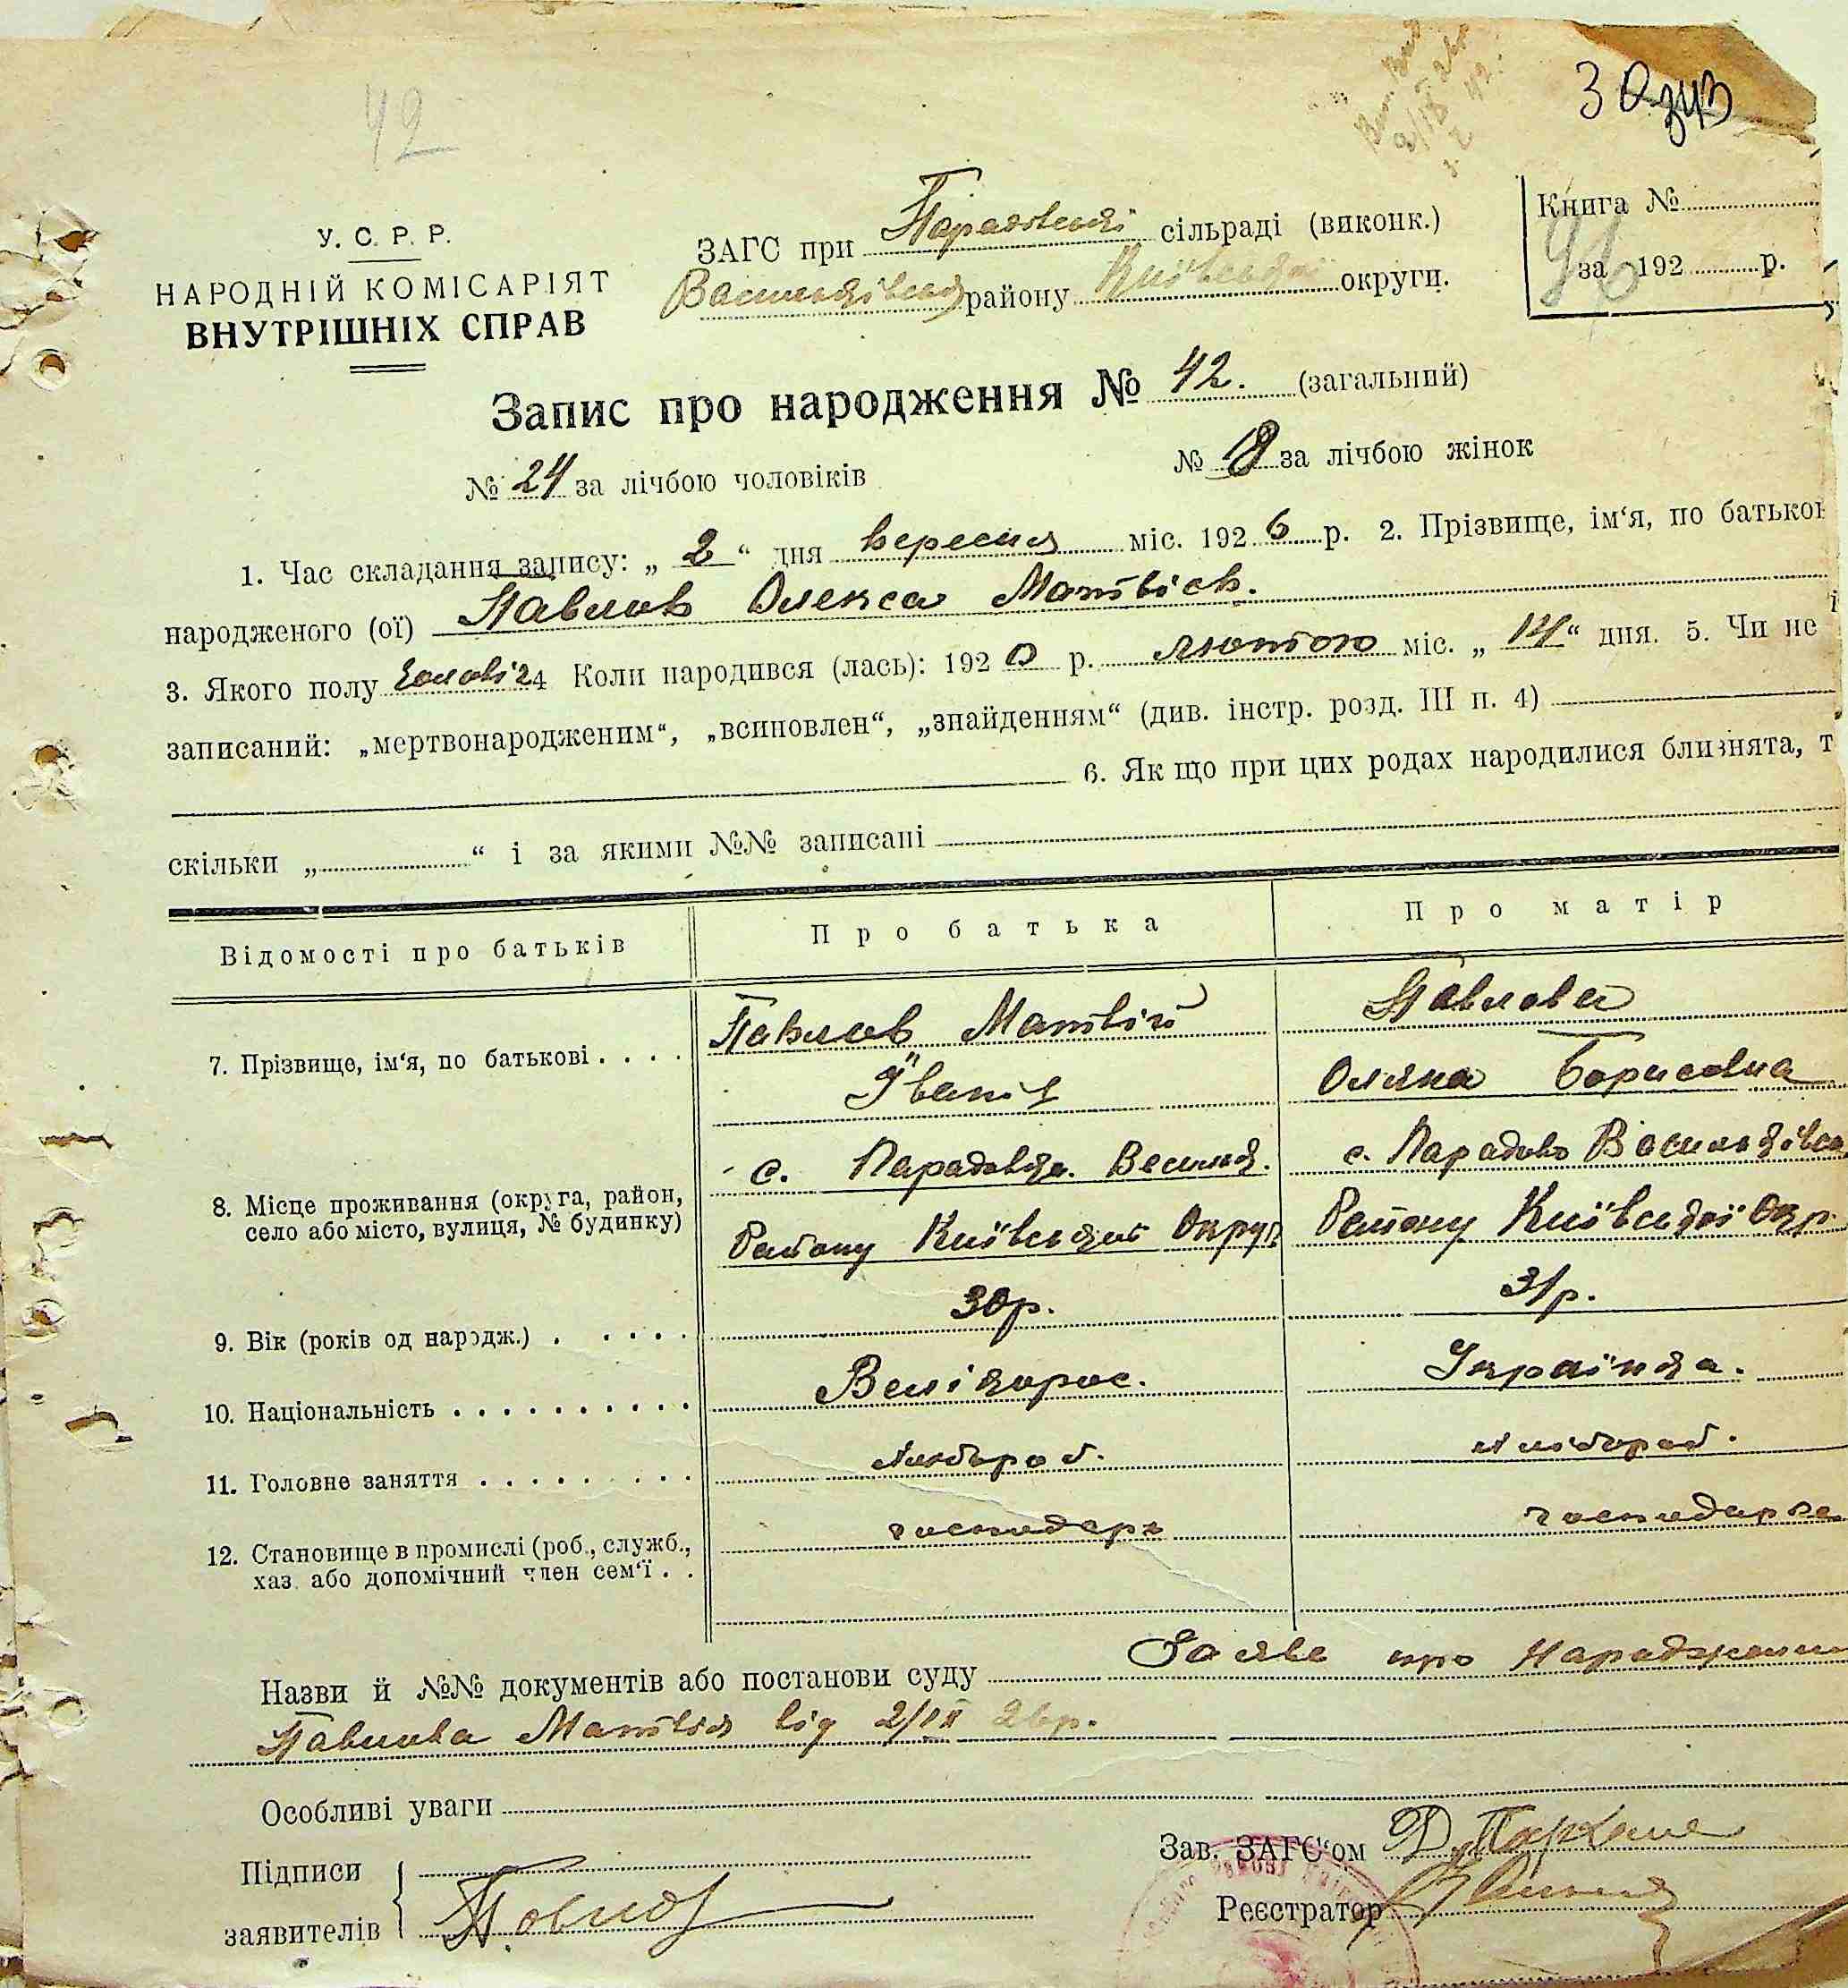 42
З Од зуз
У. С. Р. Р.
НАРОДНІЙ КОМІСАРІЯТ
ВНУТРІШНІХ СПРАВ
ЗАГС при сільраді (виконк.)
району Київської округи.
Книга №
за 192 р.
Запис про народження № 42. (загальний)
№ 24 за лічбою чоловіків № 18 за лічбою жінок
1. Час складання запису: „ 2 “ дня вересня міс. 192 6 р. 2. Прізвище, ім‘я, по батьков
народженого (ої) Павлов Олекса Матвієв.
3. Якого полу чолов і ч 4 Коли народився (лась): 192 0 р. лютого міс. „ 14 “ дня. 5. Чи не і
записаний: „мертвонародженим“, „всиновлен“, „знайденням“ (див. інстр. розд. III п. 4)
6. Як що при цих родах народилися близнята, т
скільки „ “ і за якими №№ записані
Відомості про батьків Про батька Про матір
7. Прізвище, ім‘я, по батькові Павлов Матвій Павлова
Іванів Оляна Борисовна
8. Місце проживання (округа, район, с. Васильк.
село або місто, вулиця, № будинку) Району Київської Округ Району Київської Окр.
9. Вік (років од народж.) 30р. 31р.
10. Національність Велікорос. Українка.
11. Головне заняття хлібороб. хлібороб.
12. Становище в промислі (роб., служб., господарь господарка
хаз. або допомічний член сем‘ї
Назви й №№ документів або постанови суду Заява про народження
Павлова Матвія від 2/ІХ 26р.
Особливі уваги
Підписи
заявителів Павлов
Зав. ЗАГС‘ом
Реєстратор